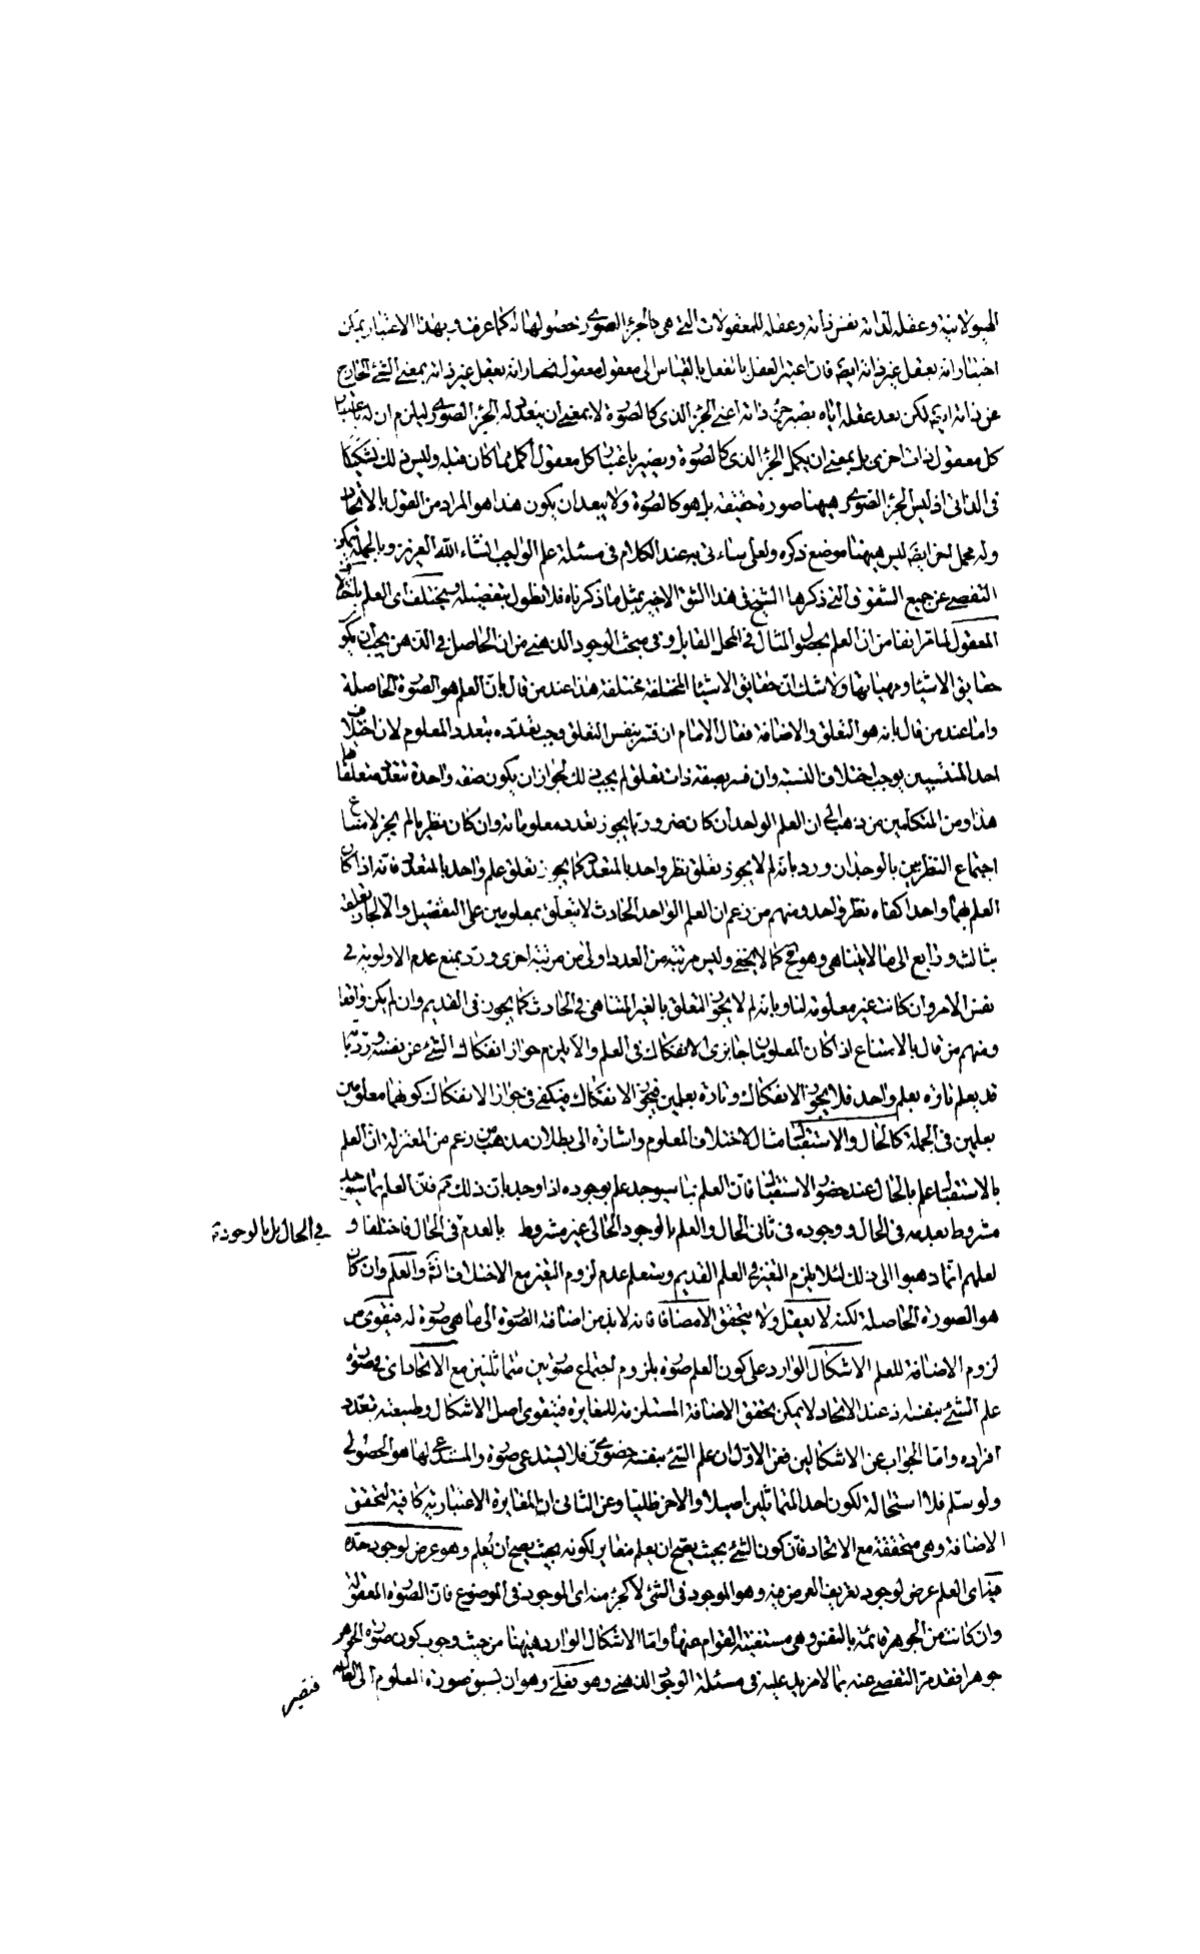 الهيولانية وعقله لذاته نفس ذاته وعقله للمعقولات التى هى كالجزء الصورى حصولها له كما عرفت وبهذا الاعتبار يمكن
اختيار انه يعقل غير ذاته ايضا فان اعتبر العقل بالفعل بالقياس الى معقول معقول فصار انه يعقل غير ذاته بمعنى الشئ الخارج
عن ذاته ايضا لكن بعد عقله اياه يصير جزء ذاته اعنى الجزء الذى كالصورة لا بمعنى ان يتعدد له الجزء الصورى ليلزم ان له باعتبار
كل معقول ذات اخرى بل بمعنى ان يكمل الجزء الذى كالصورة ويصير باعتبار كل معقول اكمل مما كان قبله وليس ذلك تشكيكا
فى الذاتى اذ ليس الجزء الصورى هيهنا صورة حقيقة بل هو كالصورة ولا يبعد ان يكون هذا هو المراد من القول بالاتحاد
وله محمل اخر ايضا ليس هيهنا موضع ذكره ولعلى سناتى به عند الكلام فى مسئلة علم الواجب انشاء الله العزيز وبالجملة يمكن
التفصى عن جميع الشقوق التى ذكرها الشيخ فى هذا الشق الاخير بمثل ما ذكرناه فلا نطول بتفصيله ويختلف اى العلم باختلاف
المعقول لما مر انفا من ان العلم بحصول المثال فى المحل القابل وفى مبحث الوجود الذهنى من ان الحاصل فى الذهن يجب ان يكون
حقايق الاشياء ومهياتها ولا شك ان حقايق الاشياء المختلفة مختلفة هذا عند من قال بان العلم هو الصورة الحاصلة
واما عند من قال بانه هو التعلق والاضافة فقال الامام ان فسر بنفس التعلق وجب تعدده بتعدد المعلوم لان اختلاف
احد المنتسبين يوجب اختلاف النسبة وان فسر بصفة ذات تعلق لم يجب ذلك لجواز ان يكون صفة واحدة تتعدد متعلقاتها
هذا ومن المتكلمين من ذهب الى ان العلم الواحد ان كان ضروريا يجوز تعدد معلوماته وان كان نظريا لم يجز لامتناع
اجتماع النظريين بالوجدان ورد بانه لم لا يجوز تعلق نظر واحد بالمتعدد كما يجوز تعلق علم واحد بالمتعدد فانه اذا كان
العلم بهما واحدا كفاه نظر واحد ومنهم من زعم ان العلم الواحد الحادث لا يتعلق بمعلومين على التفصيل والا لجاز تعلقه
بثالث ورابع الى ما لا يتناهى وهو مح كما لا يخفى وليس مرتبة من العدد اولى من مرتبة اخرى ورد بمنع عدم الاولوية فى
نفس الامر وان كانت غير معلومة لنا وبانه لم لا يجوز التعلق بالغير المتناهى فى الحادث كما يجوز فى القديم وان لم يكن واقعا
ومنهم من قال بالامتناع اذا كان المعلومان جايزى الانفكاك فى العلم والا يلزم جواز انفكاك الشئ عن نفسه ورد بانه
قد يعلم تارة بعلم واحد فلا يجوز الانفكاك وتارة بعلمين فيجوز الانفكاك فيكفى فى جواز الانفكاك كونهما معلومين
بعلمين فى الجملة كالحال والاستقبال مثال لاختلاف المعلوم واشارة الى بطلان مذهب من زعم من المعتزلة ان العلم
بالاستقبال علم بالحال عند حضور الاستقبال فان العلم بما سيوجد علم بوجوده اذا وجد بان ذلك مم فان العلم بما سيوجد
مشروط بعدمه فى الحال ووجوده فى ثانى الحال والعلم بالوجود الحالى غير مشروط بالعدم فى الحال فاختلفا و
فى الحال بل بالوجود فيه
لعلهم انما ذهبوا الى ذلك لئلا يلزم التغير فى العلم القديم وستعلم عدم لزوم التغير مع الاختلاف انشاء والعلم وان كان
هو الصورة الحاصلة لكنه لا يعقل ولا يتحقق الا مضافا فانه لا بد من اضافة الصورة الى ما هى صورة له فيقوى من
لزوم الاضافة للعلم الاشكال الوارد على كون العلم صورة بلزوم اجتماع صورتين متماثلتين مع الاتحاد اى فى صورة
علم الشئ بنفسه اذ عند الاتحاد لا يمكن تحقق الاضافة المستلزمة للمغايرة فيتقوى اصل الاشكال وطبيعته بتعدد
افراده واما الجواب عن الاشكالين فعن الاول ان علم الشئ بنفسه حضورى فلا يستدعى صورة والمستدعى لها هو الحصولى
ولو سلم فلا استحالة لكون احد المتماثلين اصيلا والاخر ظليا وعن الثانى ان المغايرة الاعتبارية كافية لتحقق
الاضافة وهى متحققة مع الاتحاد فان كون الشئ بحيث يصح ان يعلم مغاير لكونه بحيث يصح ان يُعلم وهو عرض لوجود حده
فيه اى العلم عرض لوجود تعريف العرض فيه وهو الموجود فى الشئ لا كجزء منه اى الموجود فى الموضوع فان الصورة المعقولة
وان كانت من الجوهر قائمة بالنفس وهى مستغنية القوام عنها واما الاشكال الوارد هيهنا من حيث وجوب كون صورة الجوهر
جوهرا فقد مر التفصى عنه بما لا مزيد عليه فى مسئلة الوجود الذهنى وهو فعلى وهو ان يسبق صورة المعلوم الى العالم
فتصير